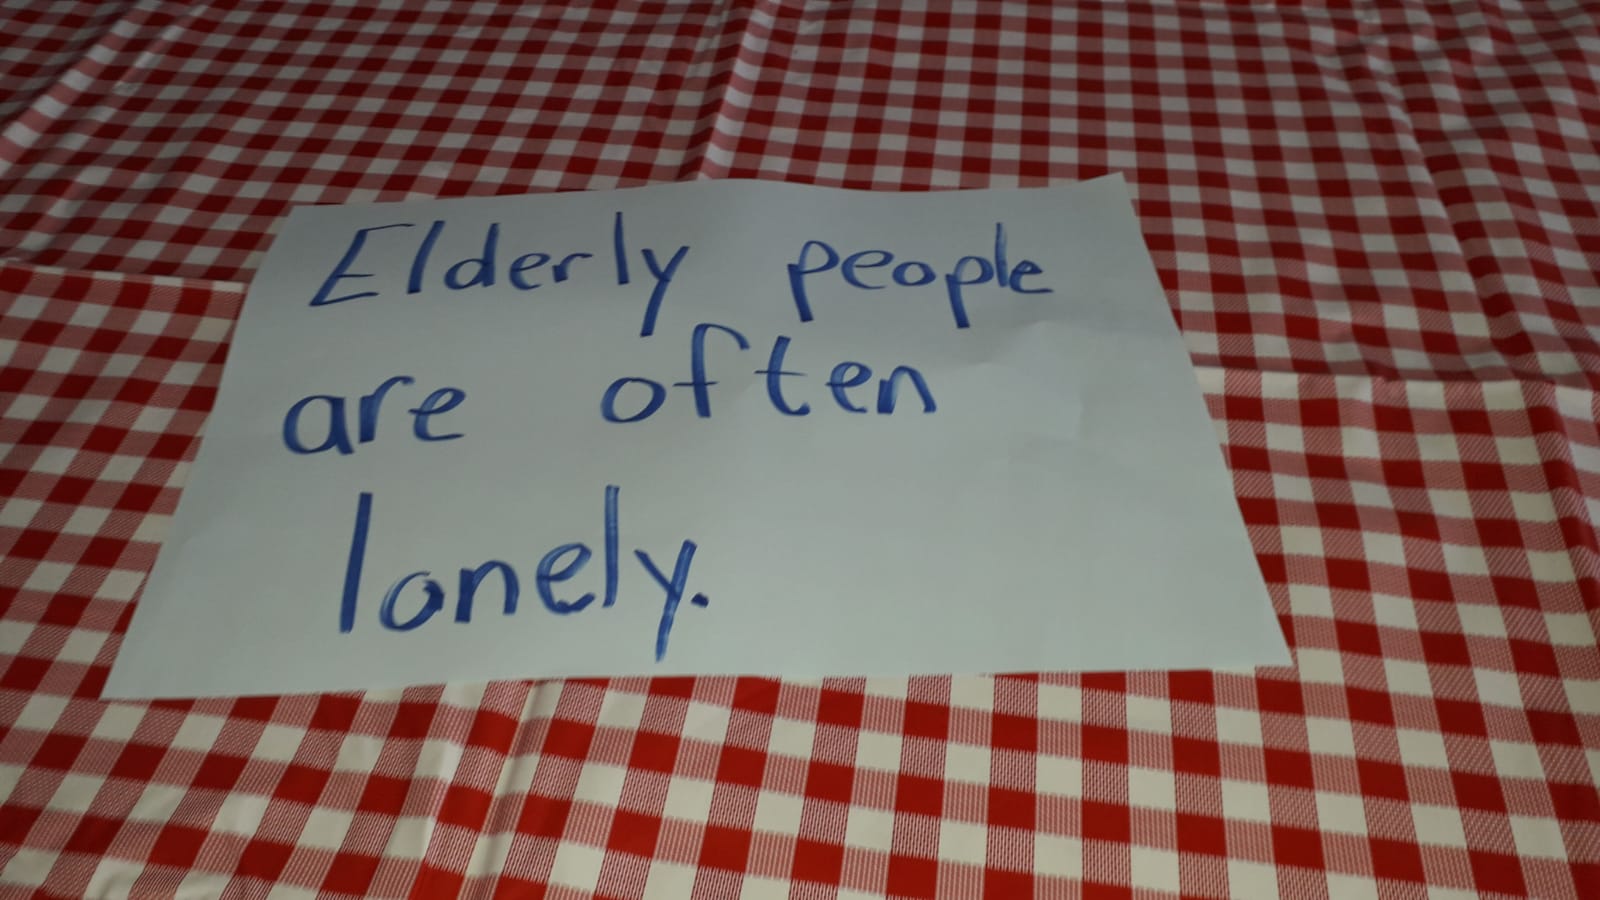 Elderly people
are often
lonely.